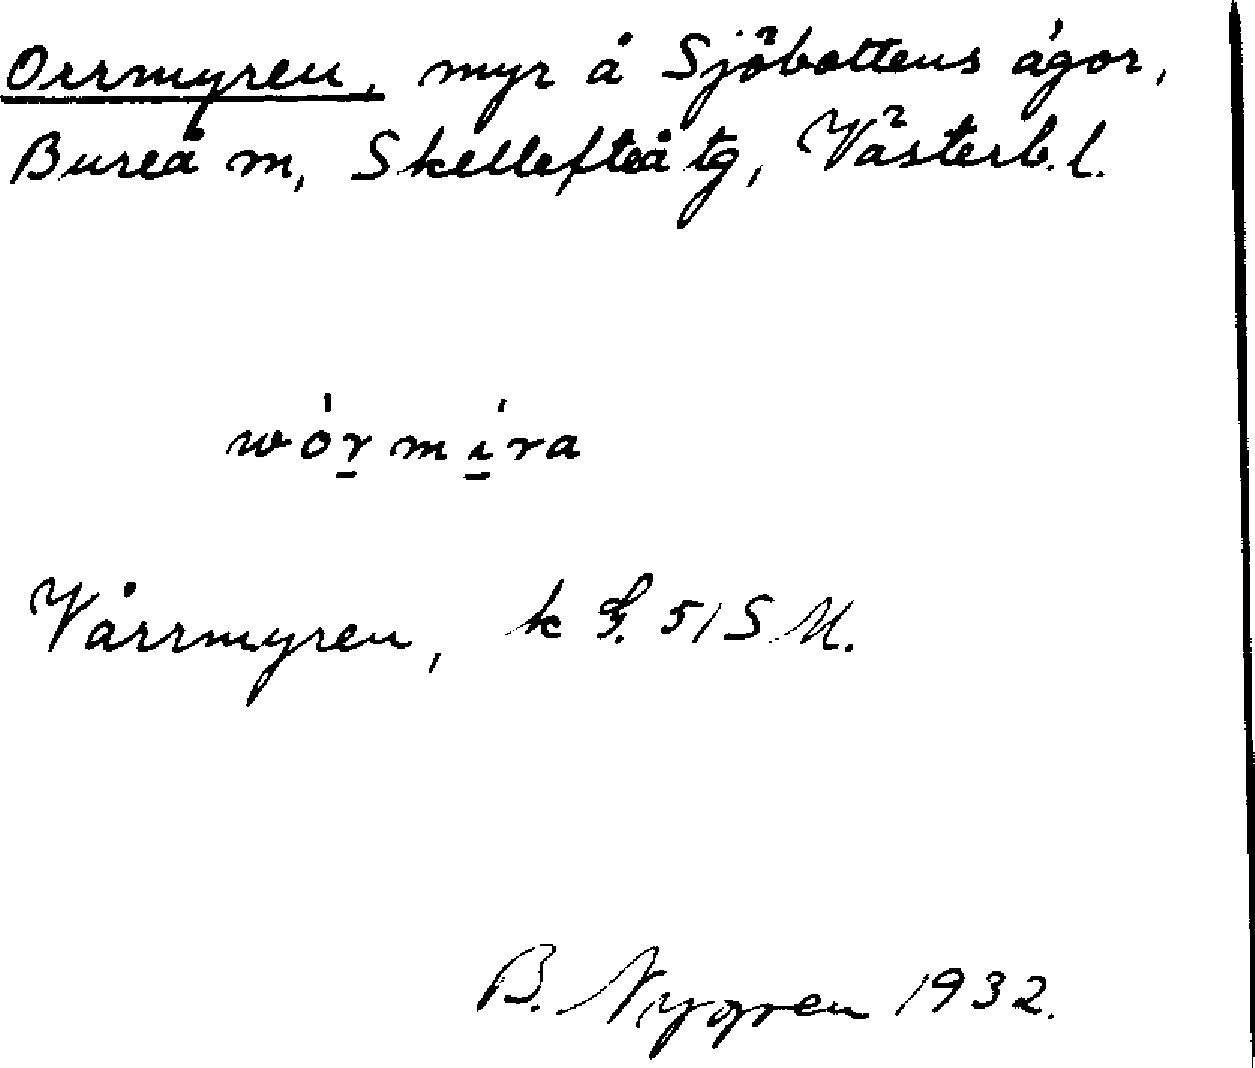 Orrmyren, myr å Sjöbottens ägor,
Bureå m, Skellefteå tg, Västerb. l.
wórmira
Vårrmyren, k g. 51 S M.
B. Nygren 1932.